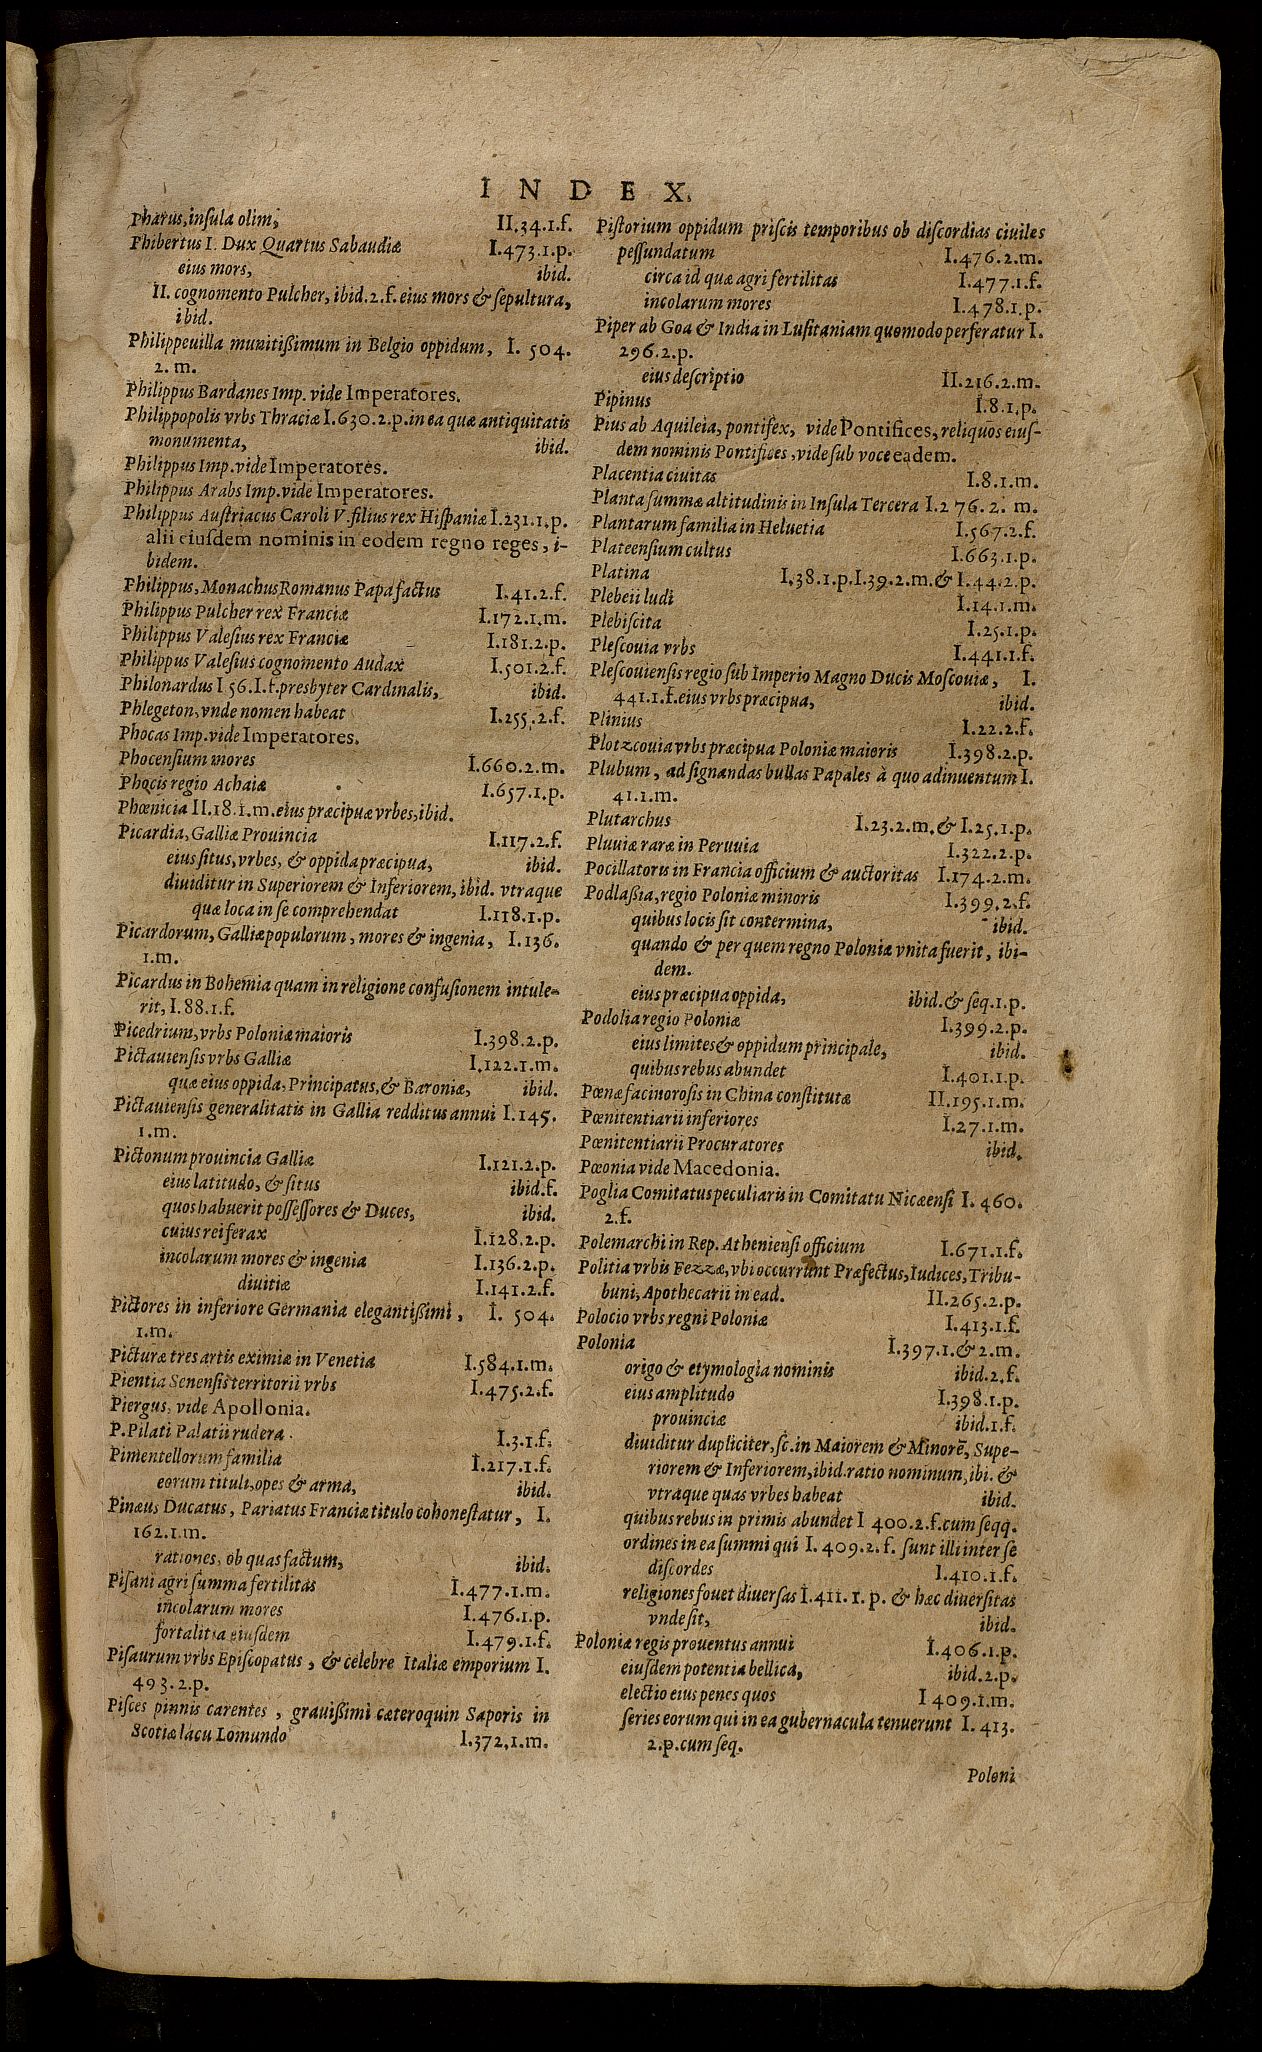 INDEX.
Pharus, inſula olim, II.34.1.f.
Phibertus I. Dux Quartus Sabaudiæ I.473.1.p.
eius mors, ibid.
II. cognomento Pulcher, ibid.2.f. eius mors & ſepultura,
ibid.
Philippeuilla munitißimum in Belgio oppidum, I. 504.
2. m.
Philippus Bardanes Imp. vide Imperatores.
Philippopolis vrbs Thraciæ I.630.2.p. in ea quæ antiquitatis
monumenta, ibid.
Philippus Imp. vide Imperatores.
Philippus Arabs Imp. vide Imperatores.
Philippus Auſtriacus Caroli V. filius rex Hiſpaniæ I.231.1.p.
alii eiuſdem nominis in eodem regno reges, i-
bidem.
Philippus, Monachus Romanus Papa factus I.41.2.f.
Philippus Pulcher rex Franciæ I.172.1.m.
Philippus Valeſius rex Franciæ I.181.2.p.
Philippus Valeſius cognomento Audax I.501.2.f.
Philonardus I 56.I.f. presbyter Cardinalis, ibid.
Phlegeton, vnde nomen habeat I.255.2.f.
Phocas Imp. vide Imperatores.
Phocenſium mores I.660.2.m.
Phocis regio Achaiæ I.657.1.p.
Phœnicia II.18.1.m. eius præcipuæ vrbes, ibid.
Picardia, Galliæ Prouincia I.117.2.f.
eius ſitus, vrbes, & oppida præcipua, ibid.
diuiditur in Superiorem & Inferiorem, ibid. vtraque
quæ loca in ſe comprehendat I.118.1.p.
Picardorum, Galliæ populorum, mores & ingenia, I.136.
1.m.
Picardus in Bohemia quam in religione confuſionem intule-
rit, I.88.1.f.
Picedrium, vrbs Poloniæ maioris I.398.2.p.
Pictauienſis vrbs Galliæ I.122.1.m.
quæ eius oppida, Principatus, & Baroniæ, ibid.
Pictauienſis generalitatis in Gallia redditus annui I.145.
1.m.
Pictonum prouincia Galliæ I.121.2.p.
eius latitudo, & ſitus ibid.f.
quos habuerit poſſeſſores & Duces, ibid.
cuius rei ferax I.128.2.p.
incolarum mores & ingenia I.136.2.p.
diuitiæ I.141.2.f.
Pictores in inferiore Germania elegantißimi, I. 504.
1.m.
Picturæ tres artis eximiæ in Venetia I.584.1.m.
Pientia Senenſis territorii vrbs I.475.2.f.
Piergus, vide Apollonia.
P. Pilati Palatii rudera. I.3.1.f.
Pimentellorum familia I.217.1.f.
eorum tituli, opes & arma, ibid.
Pinæus Ducatus, Pariatus Franciæ titulo cohoneſtatur, I.
162.1.m.
rationes, ob quas factum, ibid.
Piſani agri ſumma fertilitas I.477.1.m.
incolarum mores I.476.1.p.
fortalitia eiuſdem I.479.1.f.
Piſaurum vrbs Epiſcopatus, & celebre Italiæ emporium I.
493.2.p.
Piſces pinnis carentes, grauißimi cæteroquin Saporis in
Scotiæ lacu Lomundo I.372.1.m.
Piſtorium oppidum priſcis temporibus ob diſcordias ciuiles
peſſundatum I.476.2.m.
circa id quæ agri fertilitas I.477.1.f.
incolarum mores I.478.1.p.
Piper ab Goa & India in Luſitaniam quomodo perferatur I.
296.2.p.
eius deſcriptio II.216.2.m.
Pipinus I.8.1.p.
Pius ab Aquileia, pontifex, vide Pontifices, reliquos eiuſ-
dem nominis Pontifices, vide ſub voce eadem.
Placentia ciuitas I.8.1.m.
Planta ſummæ altitudinis in Inſula Tercera I.2 76. 2. m.
Plantarum familia in Heluetia I.567.2.f.
Plateenſium cultus I.663.1.p.
Platina I.38.1.p.I.39.2.m.& I.44.2.p.
Plebeii ludi I.14.1.m.
Plebiſcita I.25.1.p.
Pleſcouia vrbs I.441.1.f.
Pleſcouienſis regio ſub Imperio Magno Ducis Moſcouiæ, I.
441.1.f. eius vrbs præcipua, ibid.
Plinius I.22.2.f.
Plotzcouia vrbs præcipua Poloniæ maioris I.398.2.p.
Plubum, ad ſignandas bullas Papales à quo adinuentum I.
41.1.m.
Plutarchus I.23.2.m.& I.25.1.p.
Pluuiæ raræ in Peruuia I.322.2.p.
Pocillatoris in Francia officium & auctoritas I.174.2.m.
Podlaßia, regio Poloniæ minoris I.399.2.f.
quibus locis ſit contermina, ibid.
quando & per quem regno Poloniæ vnita fuerit, ibi-
dem.
eius præcipua oppida, ibid.& ſeq.1.p.
Podolia regio Poloniæ I.399.2.p.
eius limites & oppidum principale, ibid.
quibus rebus abundet I.401.1.p.
Pœnæ facinoroſis in China conſtitutæ II.195.1.m.
Pœnitentiarii inferiores I.27.1.m.
Pœnitentiarii Procuratores ibid.
Pœonia vide Macedonia.
Poglia Comitatus peculiaris in Comitatu Nicæenſi I. 460.
2.f.
Polemarchi in Rep. Athenienſi officium I.671.1.f.
Politia vrbis Fezzæ, vbi occurrunt Præfectus, Iudices, Tribu-
buni, Apothecarii in ead. II.265.2.p.
Polocio vrbs regni Poloniæ I.413.1.f.
Polonia I.397.1.&2.m.
origo & etymologia nominis ibid.2.f.
eius amplitudo I.398.1.p.
prouinciæ ibid.1.f.
diuiditur dupliciter, ſc. in Maiorem & Minorē, Supe-
riorem & Inferiorem, ibid. ratio nominum, ibi. &
vtraque quas vrbes habeat ibid.
quibus rebus in primis abundet I 400.2.f. cum ſeqq.
ordines in ea ſummi qui I. 409.2.f. ſunt illi inter ſe
diſcordes I.410.1.f.
religiones fouet diuerſas I.411.1.p. & hæc diuerſitas
vnde ſit, ibid.
Poloniæ regis prouentus annui I.406.1.p.
eiuſdem potentia bellica, ibid.2.p.
electio eius penes quos I 409.1.m.
ſeries eorum qui in ea gubernacula tenuerunt I. 413.
2.p. cum ſeq.
Poloni